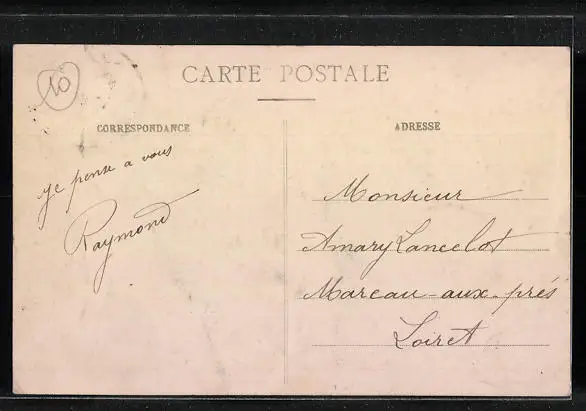 10
CARTE POSTALE
CORRESPONDANCE
ADRESSE
Je pense a vous
Raymond
Monsieur
Amary Lancelot
Mareau-aux-prés
Loiret